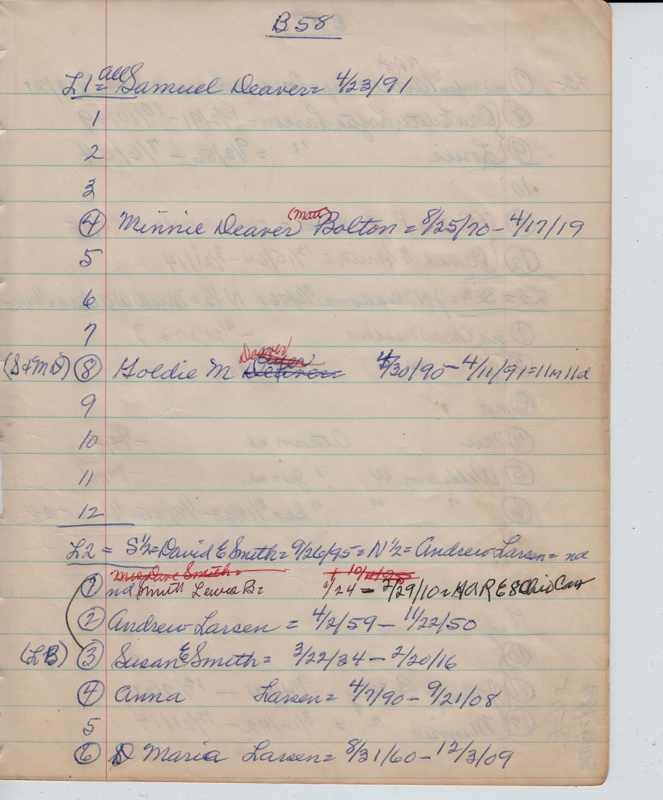 B 58
L1 = all Samuel Deaver = 4/23/91
1
2
3
4 Minnie Deaver (Matt) Bolton = 8/25/70 - 4/17/19
5
6
7
(S & M D) 8 Goldie M Deaver 4/30/90 - 4/11/91 = 11m 11d
9
10
11
12
L2 = S 1/2 = David E Smith = 9/26/95 = N 1/2 = Andrew Larsen = nd
1 nd Smith Lewis B = /24 - 2/29/10 = HQ RES Ohio Cav
2 Andrew Larsen = 4/2/59 - 11/22/50
(L B) 3 Susan E Smith = 3/22/34 - 2/20/16
4 Anna Larsen = 4/7/90 - 9/21/08
5
6 D Maria Larsen = 8/31/60 - 12/3/09